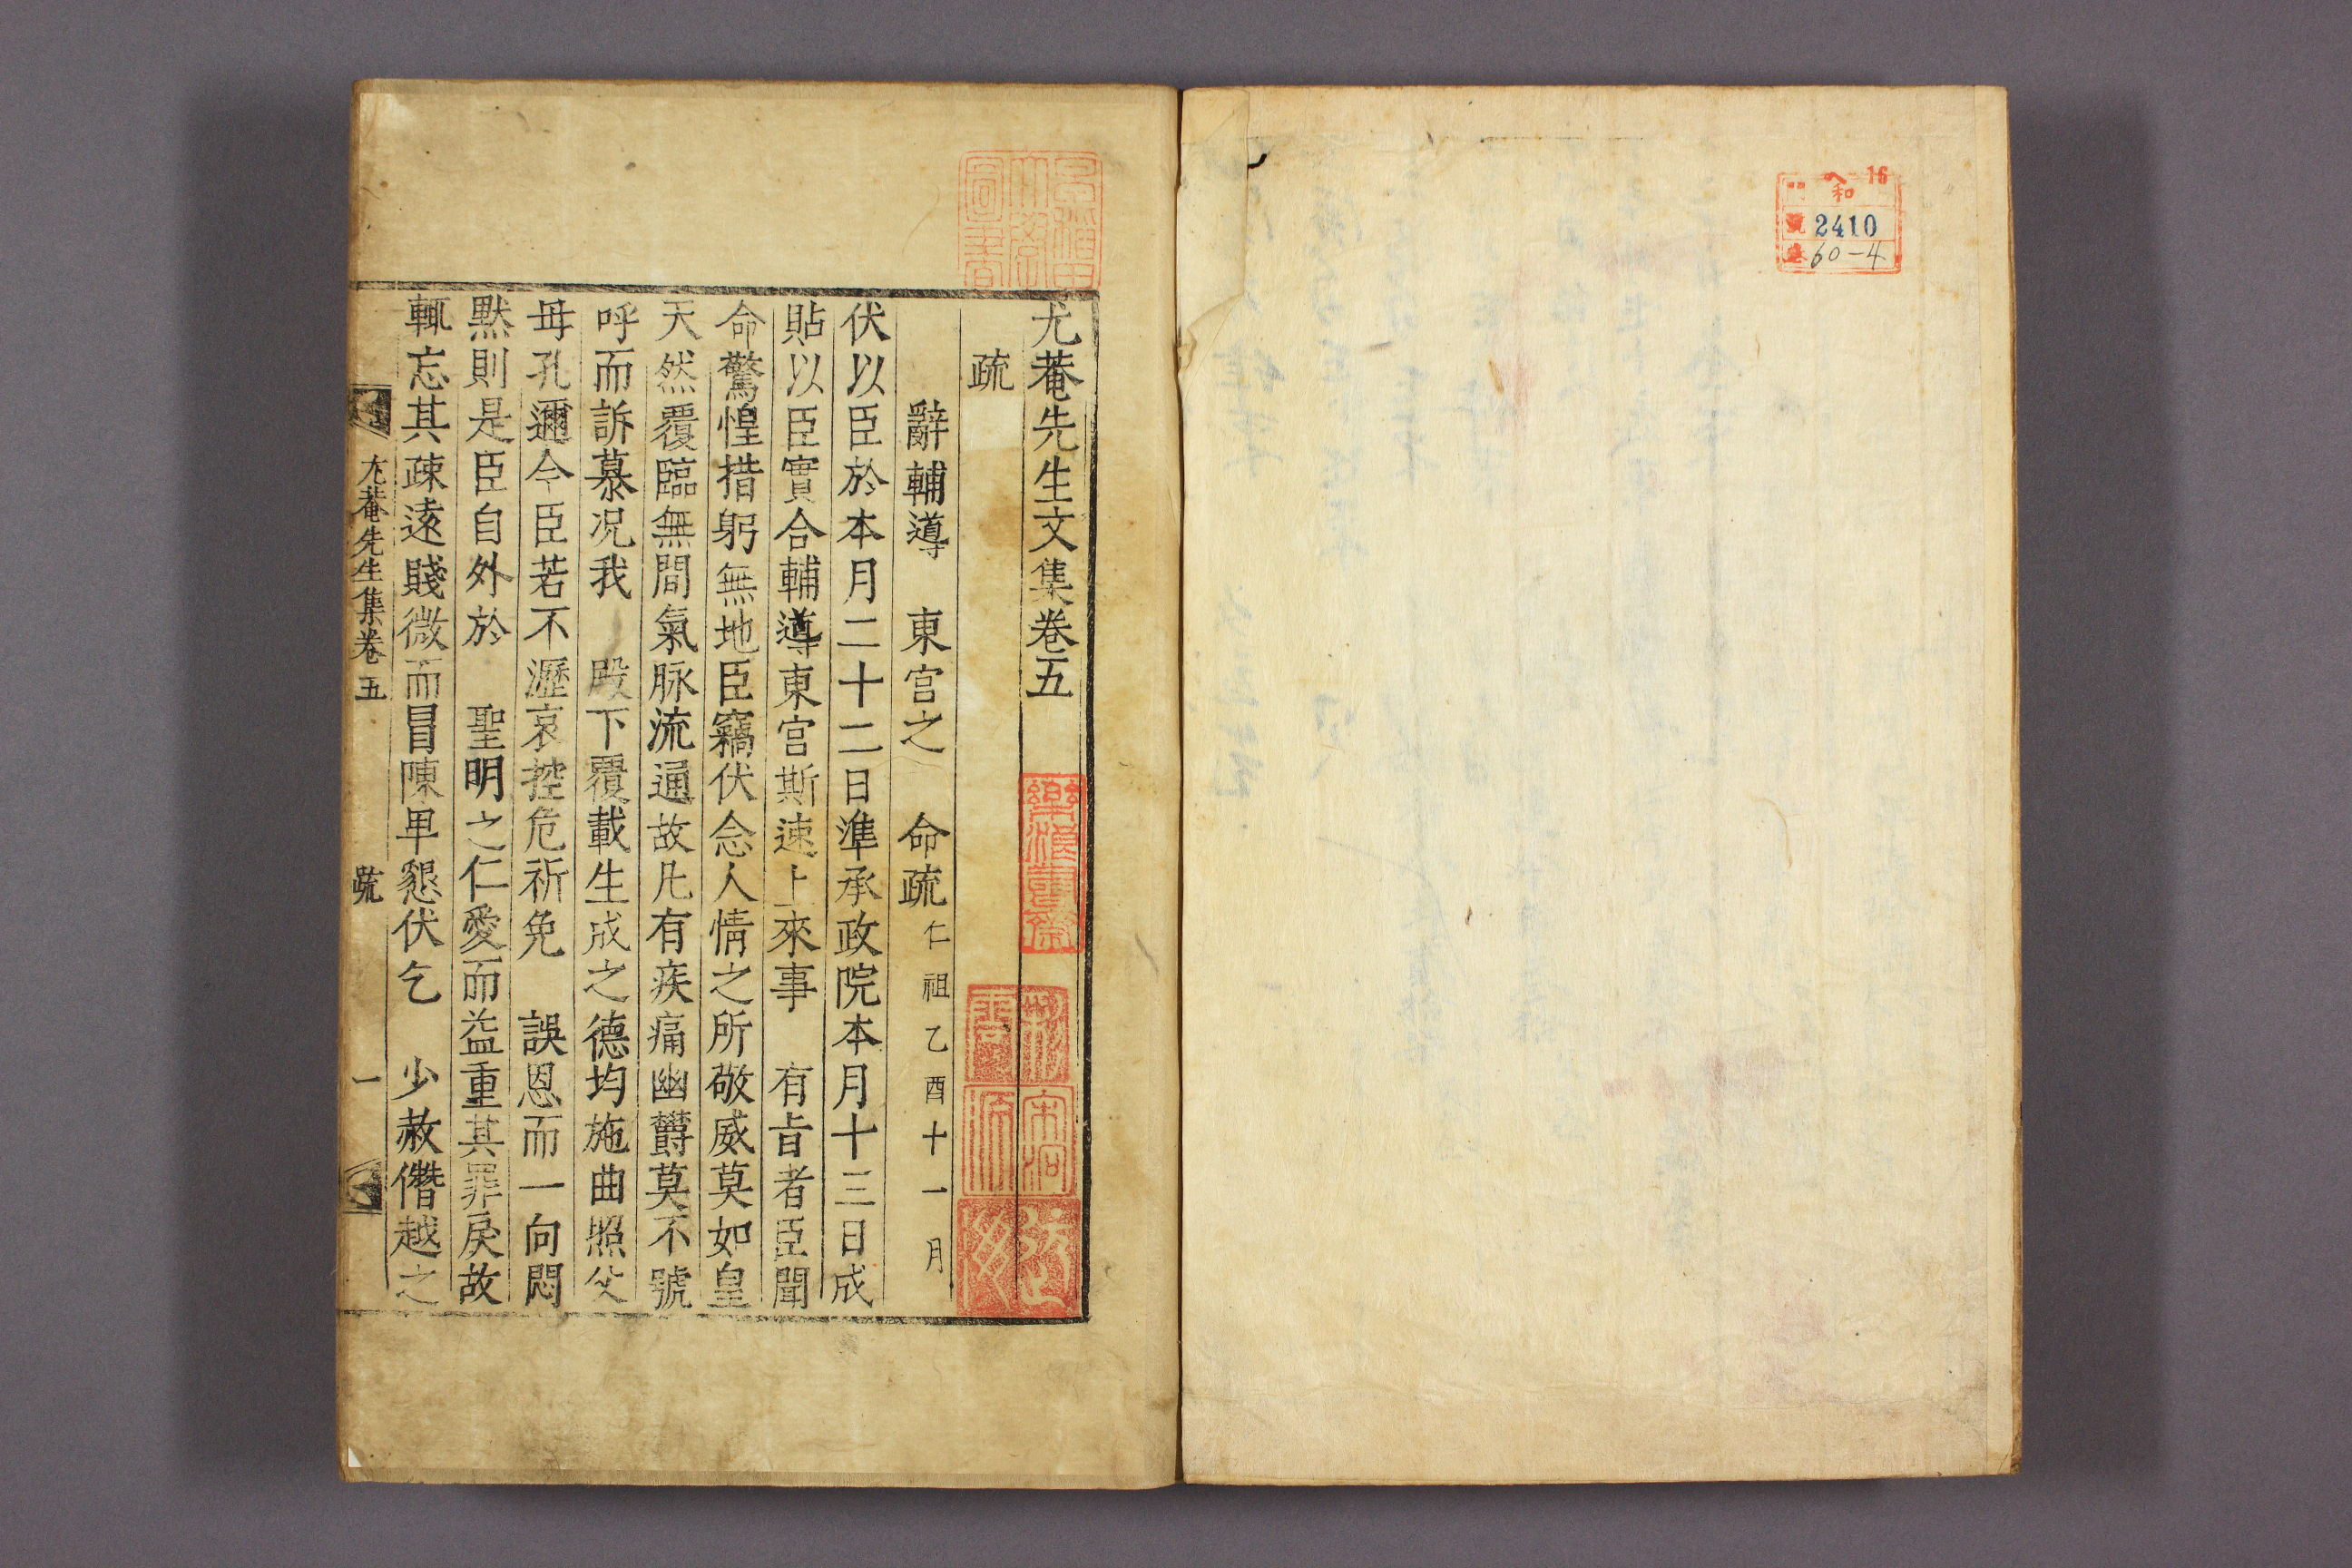 ヘ 16
和
號 2410
卷 60-4
尤菴先生文集卷五
疏
辭輔導 東宮之 命疏 仁祖乙酉十一月
伏以臣於本月二十二日準承政院本月十三日成
貼以臣實合輔導東宮斯速上來事 有旨者臣聞
命驚惶措躬無地臣竊伏念人情之所敬威莫如皇
天然覆臨無間氣脉流通故凡有疾痛幽欝莫不號
呼而訴慕况我 殿下覆載生成之德均施曲照父
毋孔邇今臣若不瀝哀控危祈免 誤恩而一向悶
默則是臣自外於 聖明之仁愛而益重其罪戾故
輒忘其疎逺賤微而冒陳卑懇伏乞 少赦僭越之
尤菴先生集卷五 疏 一